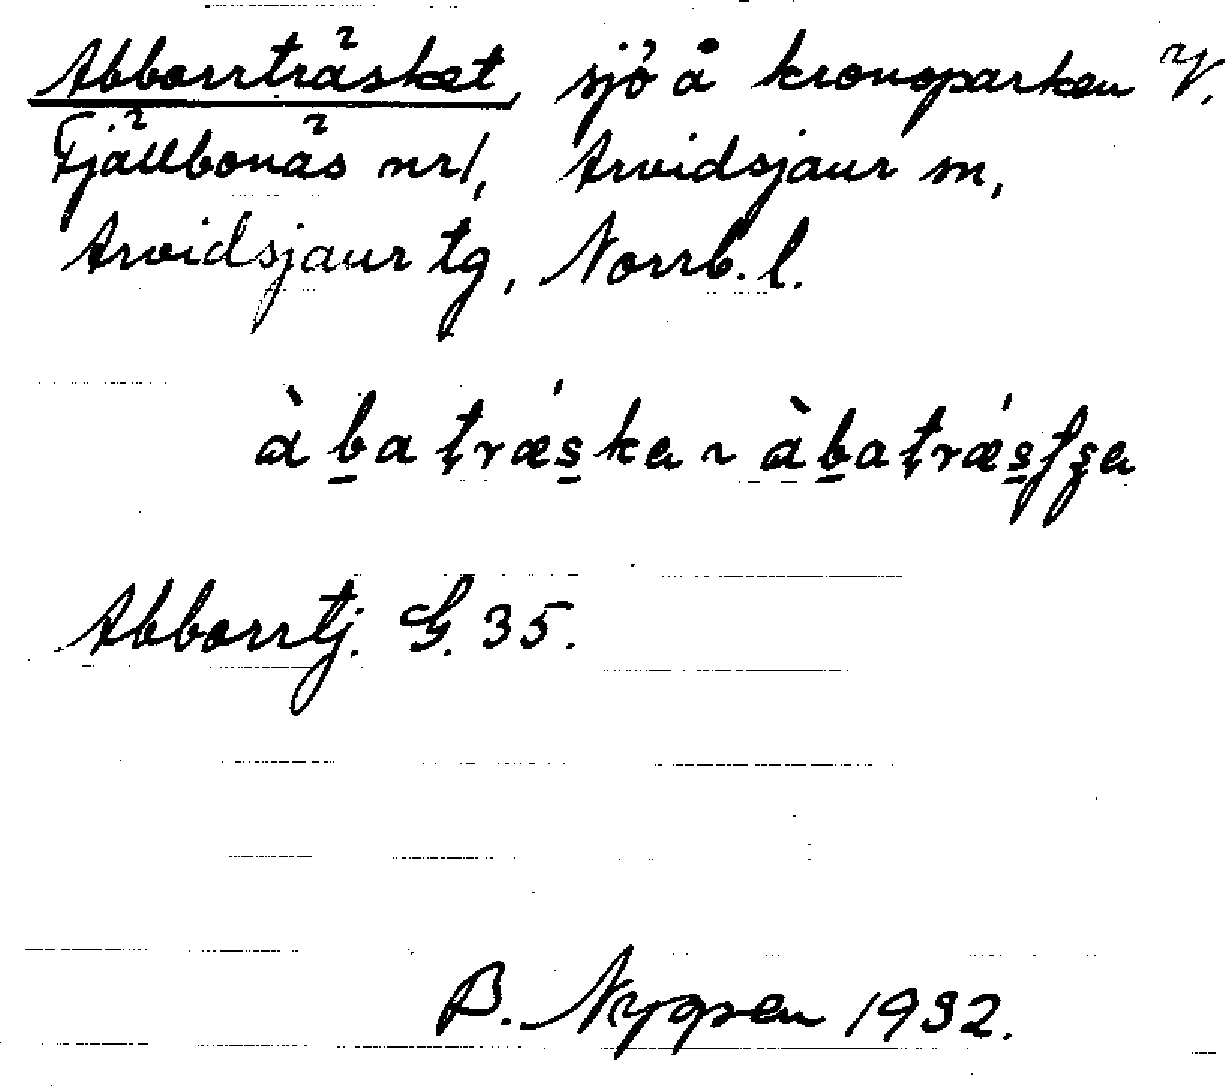 Abborrträsket, sjö å kronoparken V.
Fjällbonäs nr 1, Arvidsjaur sn,
Arvidsjaur tg, Norrb. l.
àba̠træ´s̠ka ~ àba̠træ´s̠ʃʂa
Abborrtj. G. 35.
B. Nygren 1932.